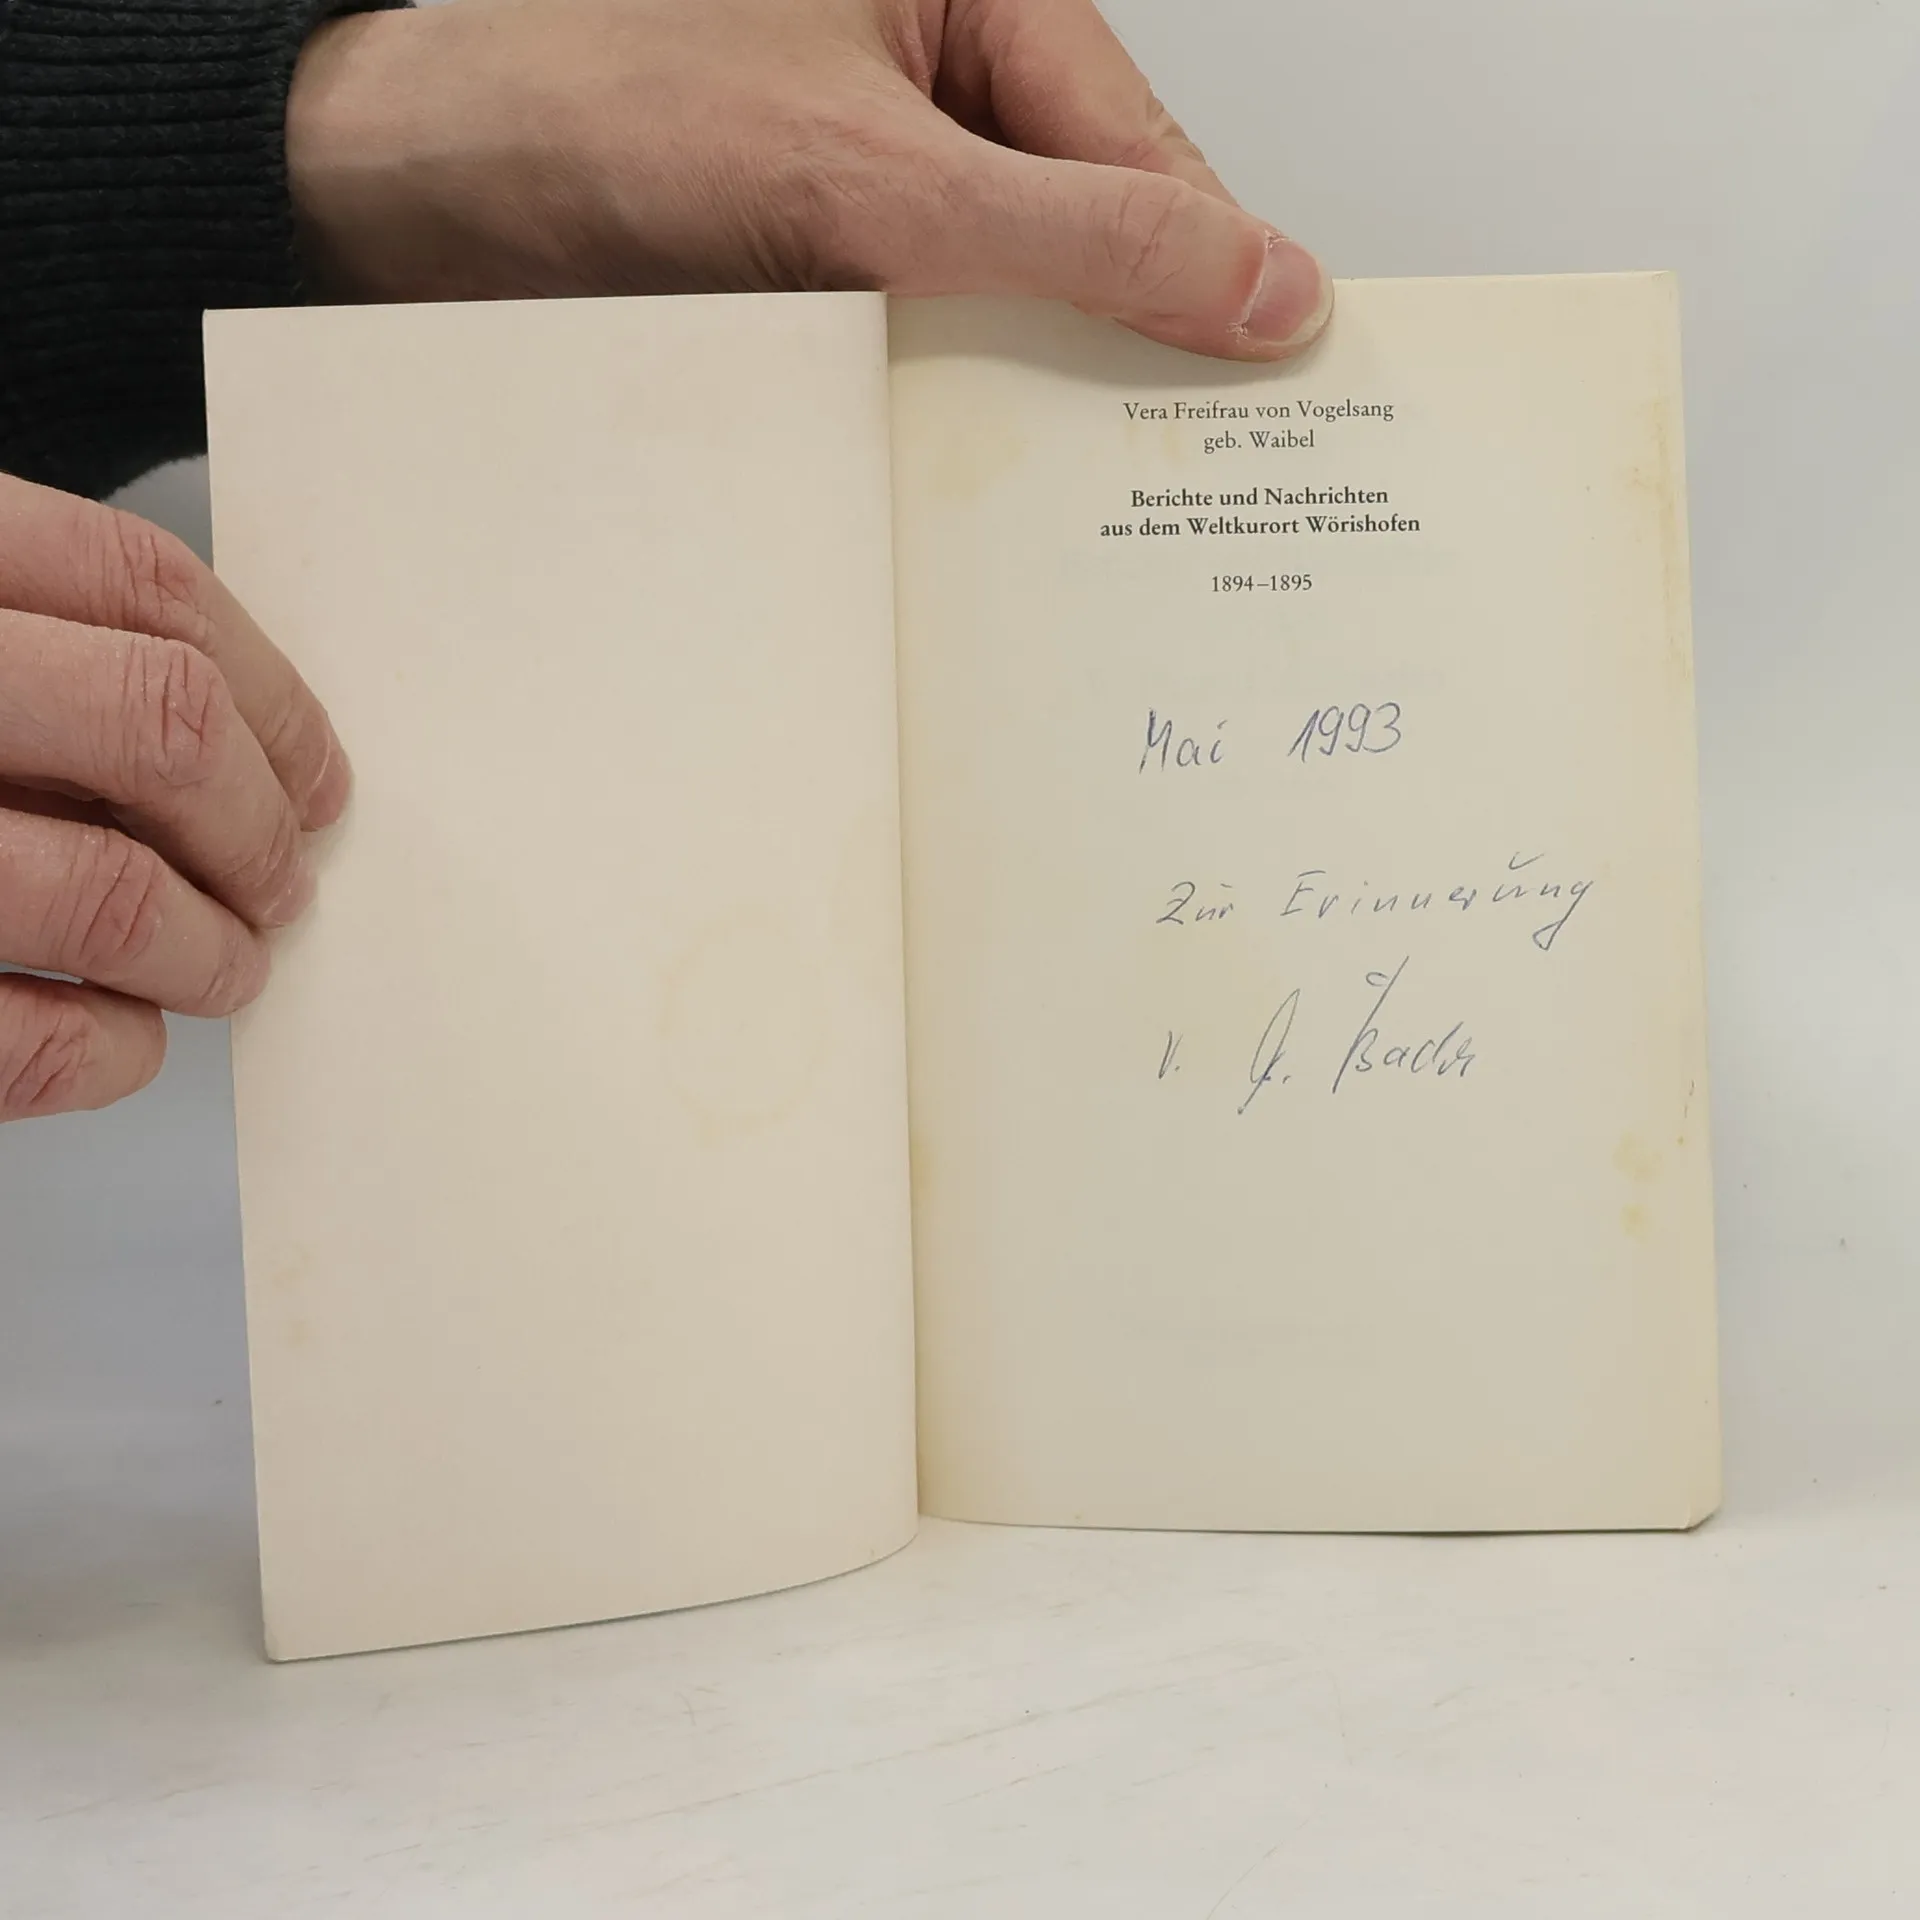 Vera Freifrau von Vogelsang
geb. Waibel
Berichte und Nachrichten
aus dem Weltkurort Wörishofen
1894–1895
Mai 1993
Zur Erinnerung
v.